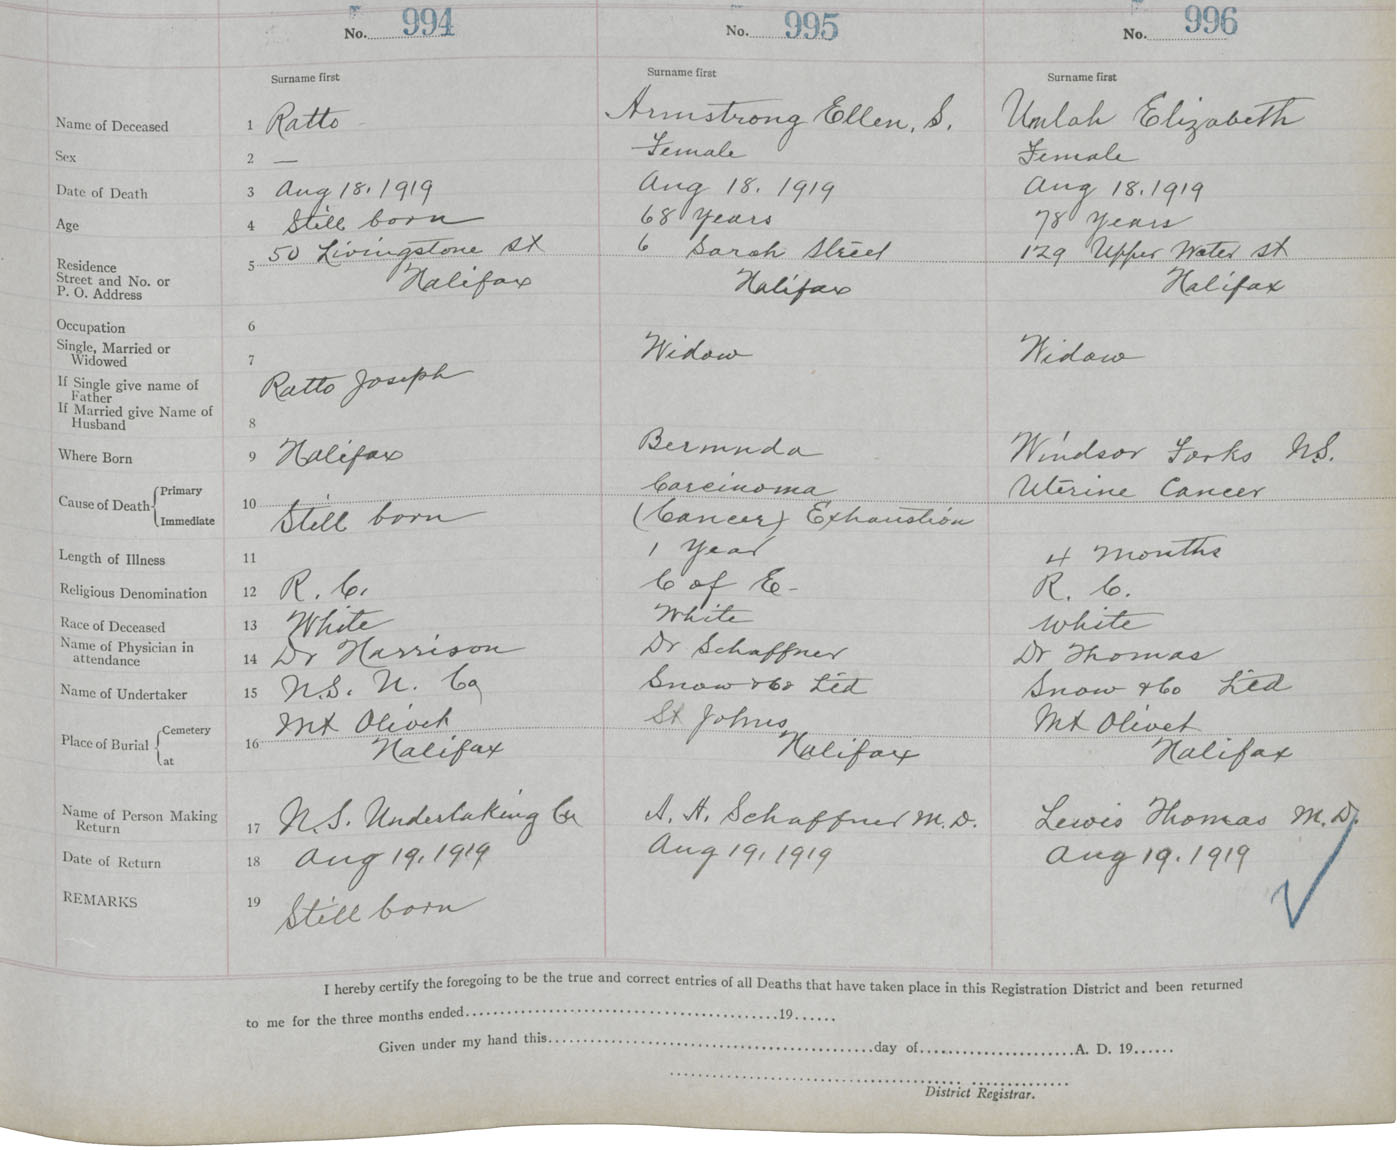 No. 994 No. 995 No. 996
Surname first Surname first Surname first
Name of Deceased 1 Ratto Armstrong Ellen, S. Umlah Elizabeth
Sex 2 — Female Female
Date of Death 3 Aug 18. 1919 Aug 18. 1919 Aug 18. 1919
Age 4 Still born 68 years 78 years
Residence Street and No. or P. O. Address 5 50 Livingstone St 6 Sarah Street 129 Upper Water St
Halifax Halifax Halifax
Occupation 6
Single, Married or Widowed 7 Widow Widow
If Single give name of Father Ratto Joseph
If Married give Name of Husband 8
Where Born 9 Halifax Bermuda Windsor Forks N.S.
Cause of Death Primary 10 Carcinoma Uterine Cancer
Immediate Still born (Cancer) Exhaustion
Length of Illness 11 1 Year 4 months
Religious Denomination 12 R. C. C of E- R. C.
Race of Deceased 13 White White White
Name of Physician in attendance 14 Dr Harrison Dr Schaffner Dr Thomas
Name of Undertaker 15 N.S. U. Co Snow & Co Ltd Snow & Co Ltd
Place of Burial Cemetery 16 Mt Olivet St Johns Mt Olivet
at Halifax Halifax Halifax
Name of Person Making Return 17 N.S. Undertaking Co A. H. Schaffner M.D. Lewis Thomas M.D.
Date of Return 18 Aug 19, 1919 Aug 19, 1919 Aug 19. 1919
REMARKS 19 Still born
I hereby certify the foregoing to be the true and correct entries of all Deaths that have taken place in this Registration District and been returned
to me for the three months ended 19
Given under my hand this day of A. D. 19
District Registrar.